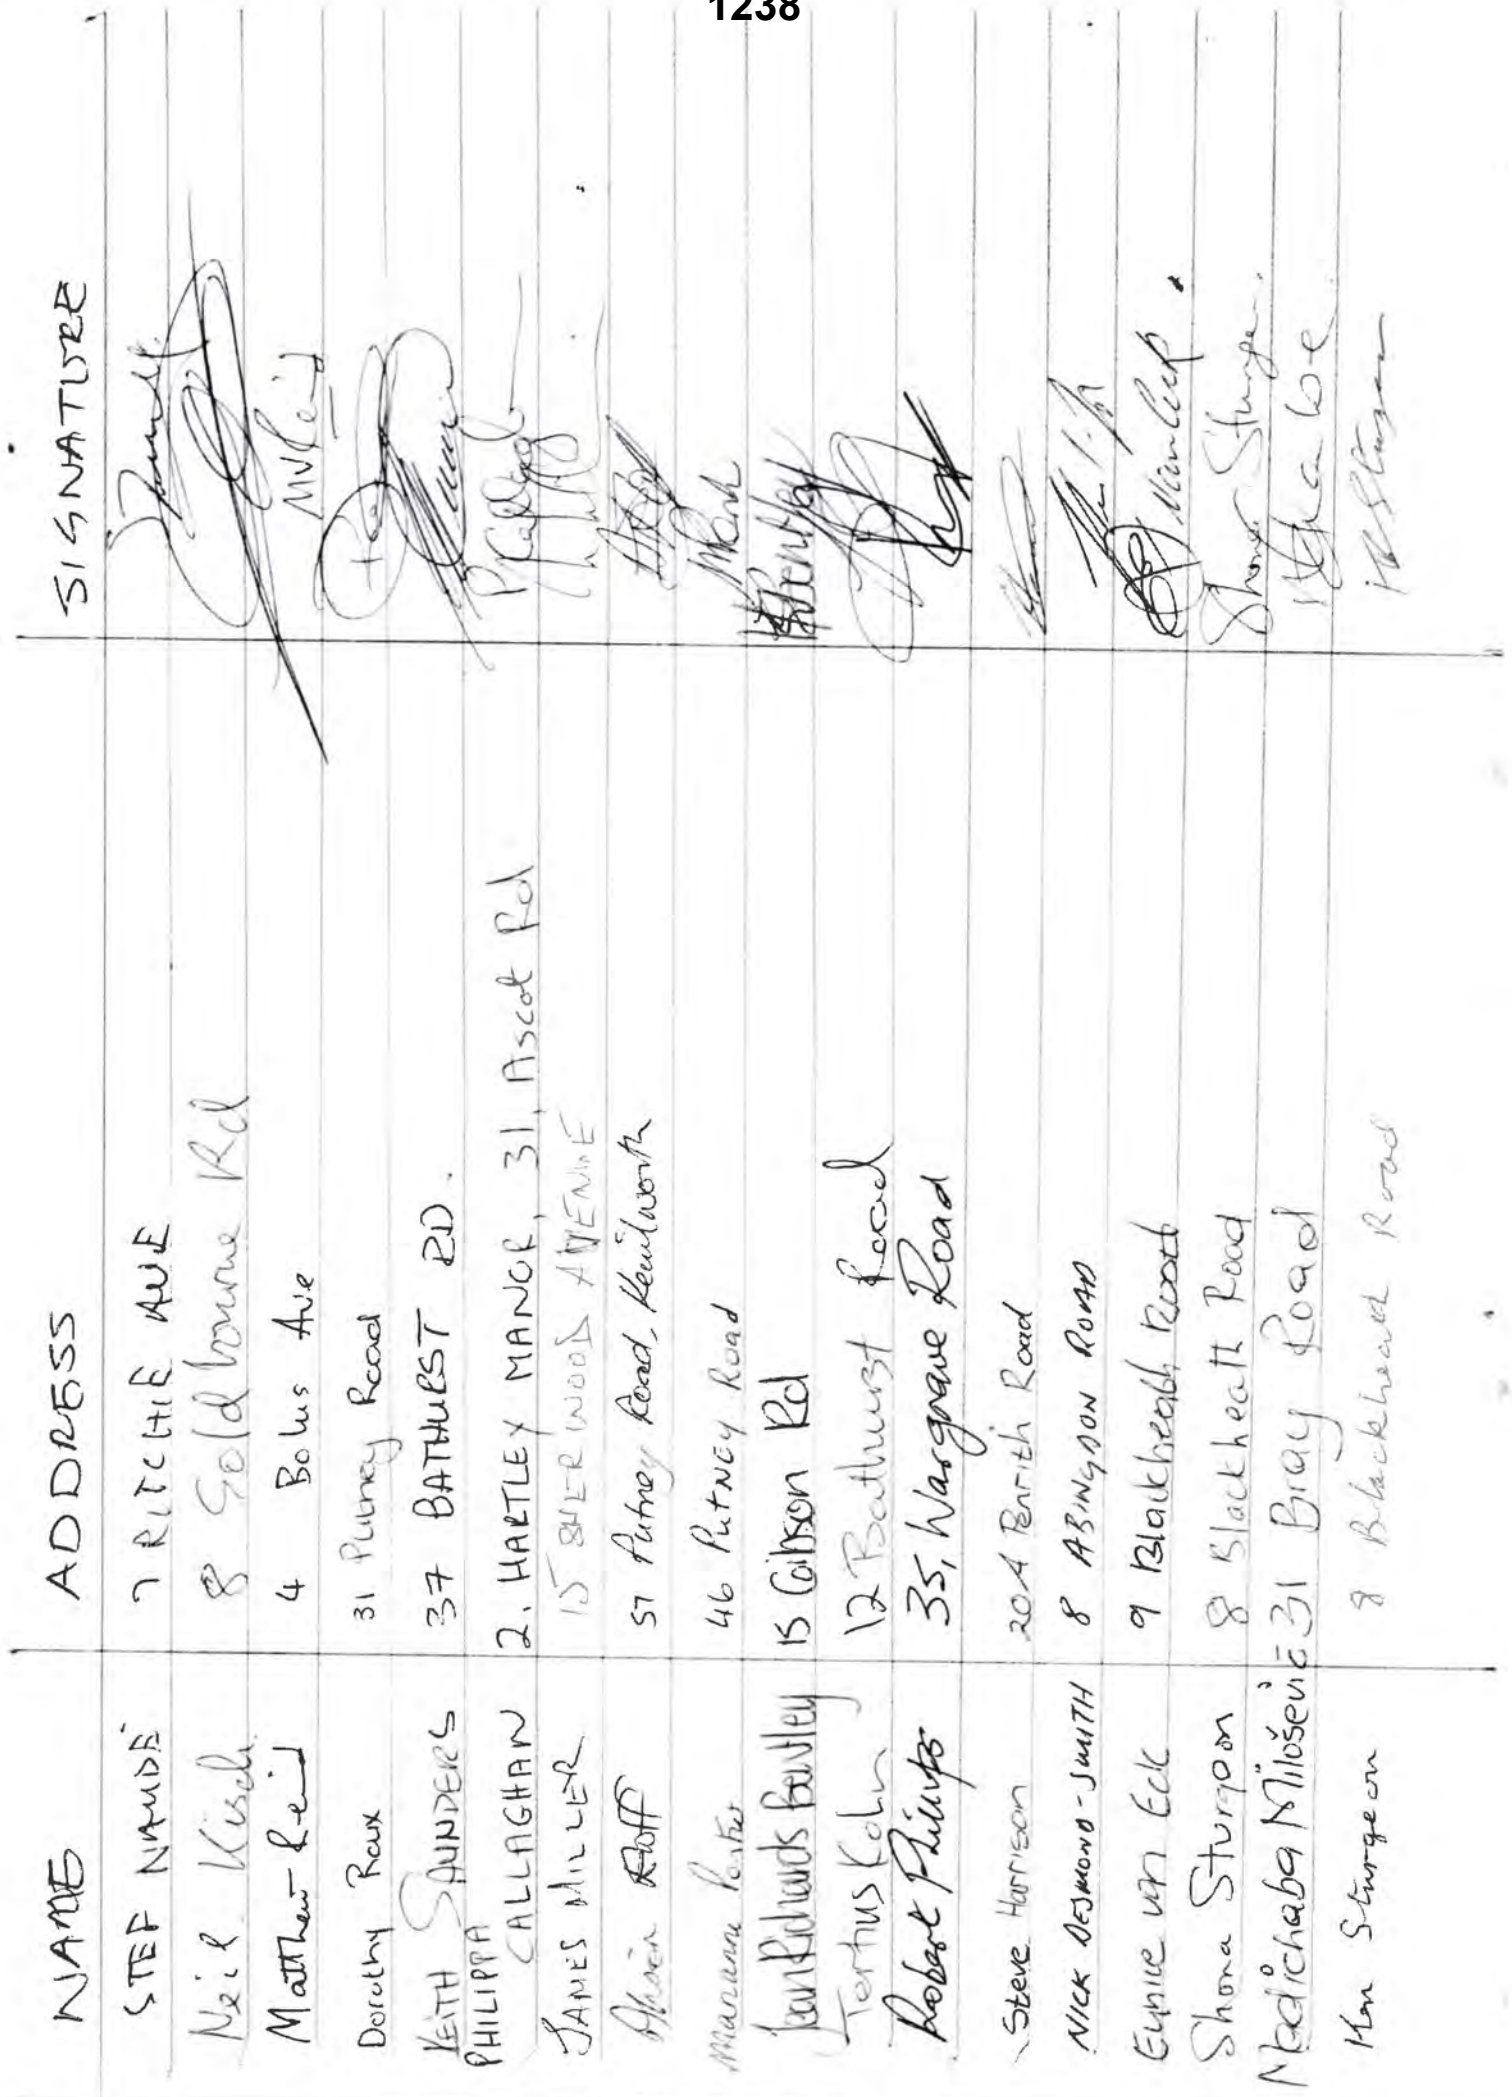 1238
NAME ADDRESS SIGNATURE
STEF NAUDÉ 7 RITCHIE AVE
Neil Kisch 8 Goldbourne Rd
Matthew Reid 4 Bolus Ave MVReid
Dorothy Roux 31 Putney Road
KEITH SAUNDERS 37 BATHURST RD.
PHILIPPA CALLAGHAN 2. HARTLEY MANOR, 31, Ascot Rd
JAMES MILLER 15 SHERWOOD AVENUE
57 Putney Road, Kenilworth
Marianne 46 PUTNEY Road
Richards Bentley 15 Gibson Rd
Tertius Kohn 12 Bathurst Road
Robert 35, Wargrave Road
Steve Harrison 20A Penrith Road
NICK DESMOND-SMITH 8 ABINGDON ROAD
Eunice van Eck 9 Blackheath Road
Shona Sturgeon 8 Blackheath Road
Madichaba Milošević 31 Bray Road
Ken Sturgeon 8 Blackheath Road